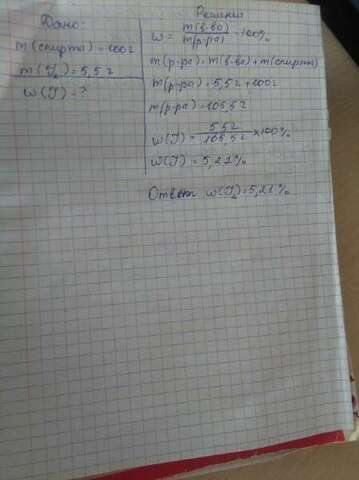 Дано:
m(спирта) = 100г
m(I₂) = 5,5г
w(I) - ?
Решение
w = m(в-ва) / m(р-ра) · 100%
m(р-ра) = m(в-ва) + m(спирта)
m(р-ра) = 5,5г + 100г
m(р-ра) = 105,5г
w(I) = 5,5г / 105,5г × 100%
w(I) = 5,21%
Ответ w(I₂) = 5,21%